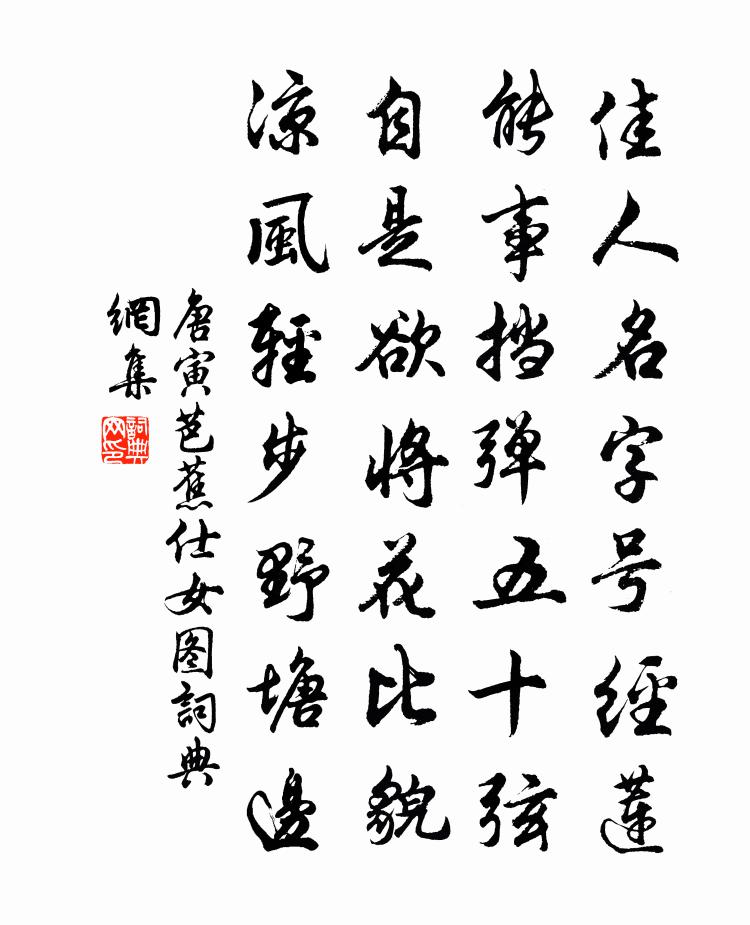 佳人名字号經蓮
能事挡弹五十弦
自是欲將花比貌
凉風輕步野塘邊
唐寅芭蕉仕女图詞典
網集
詞典
网印